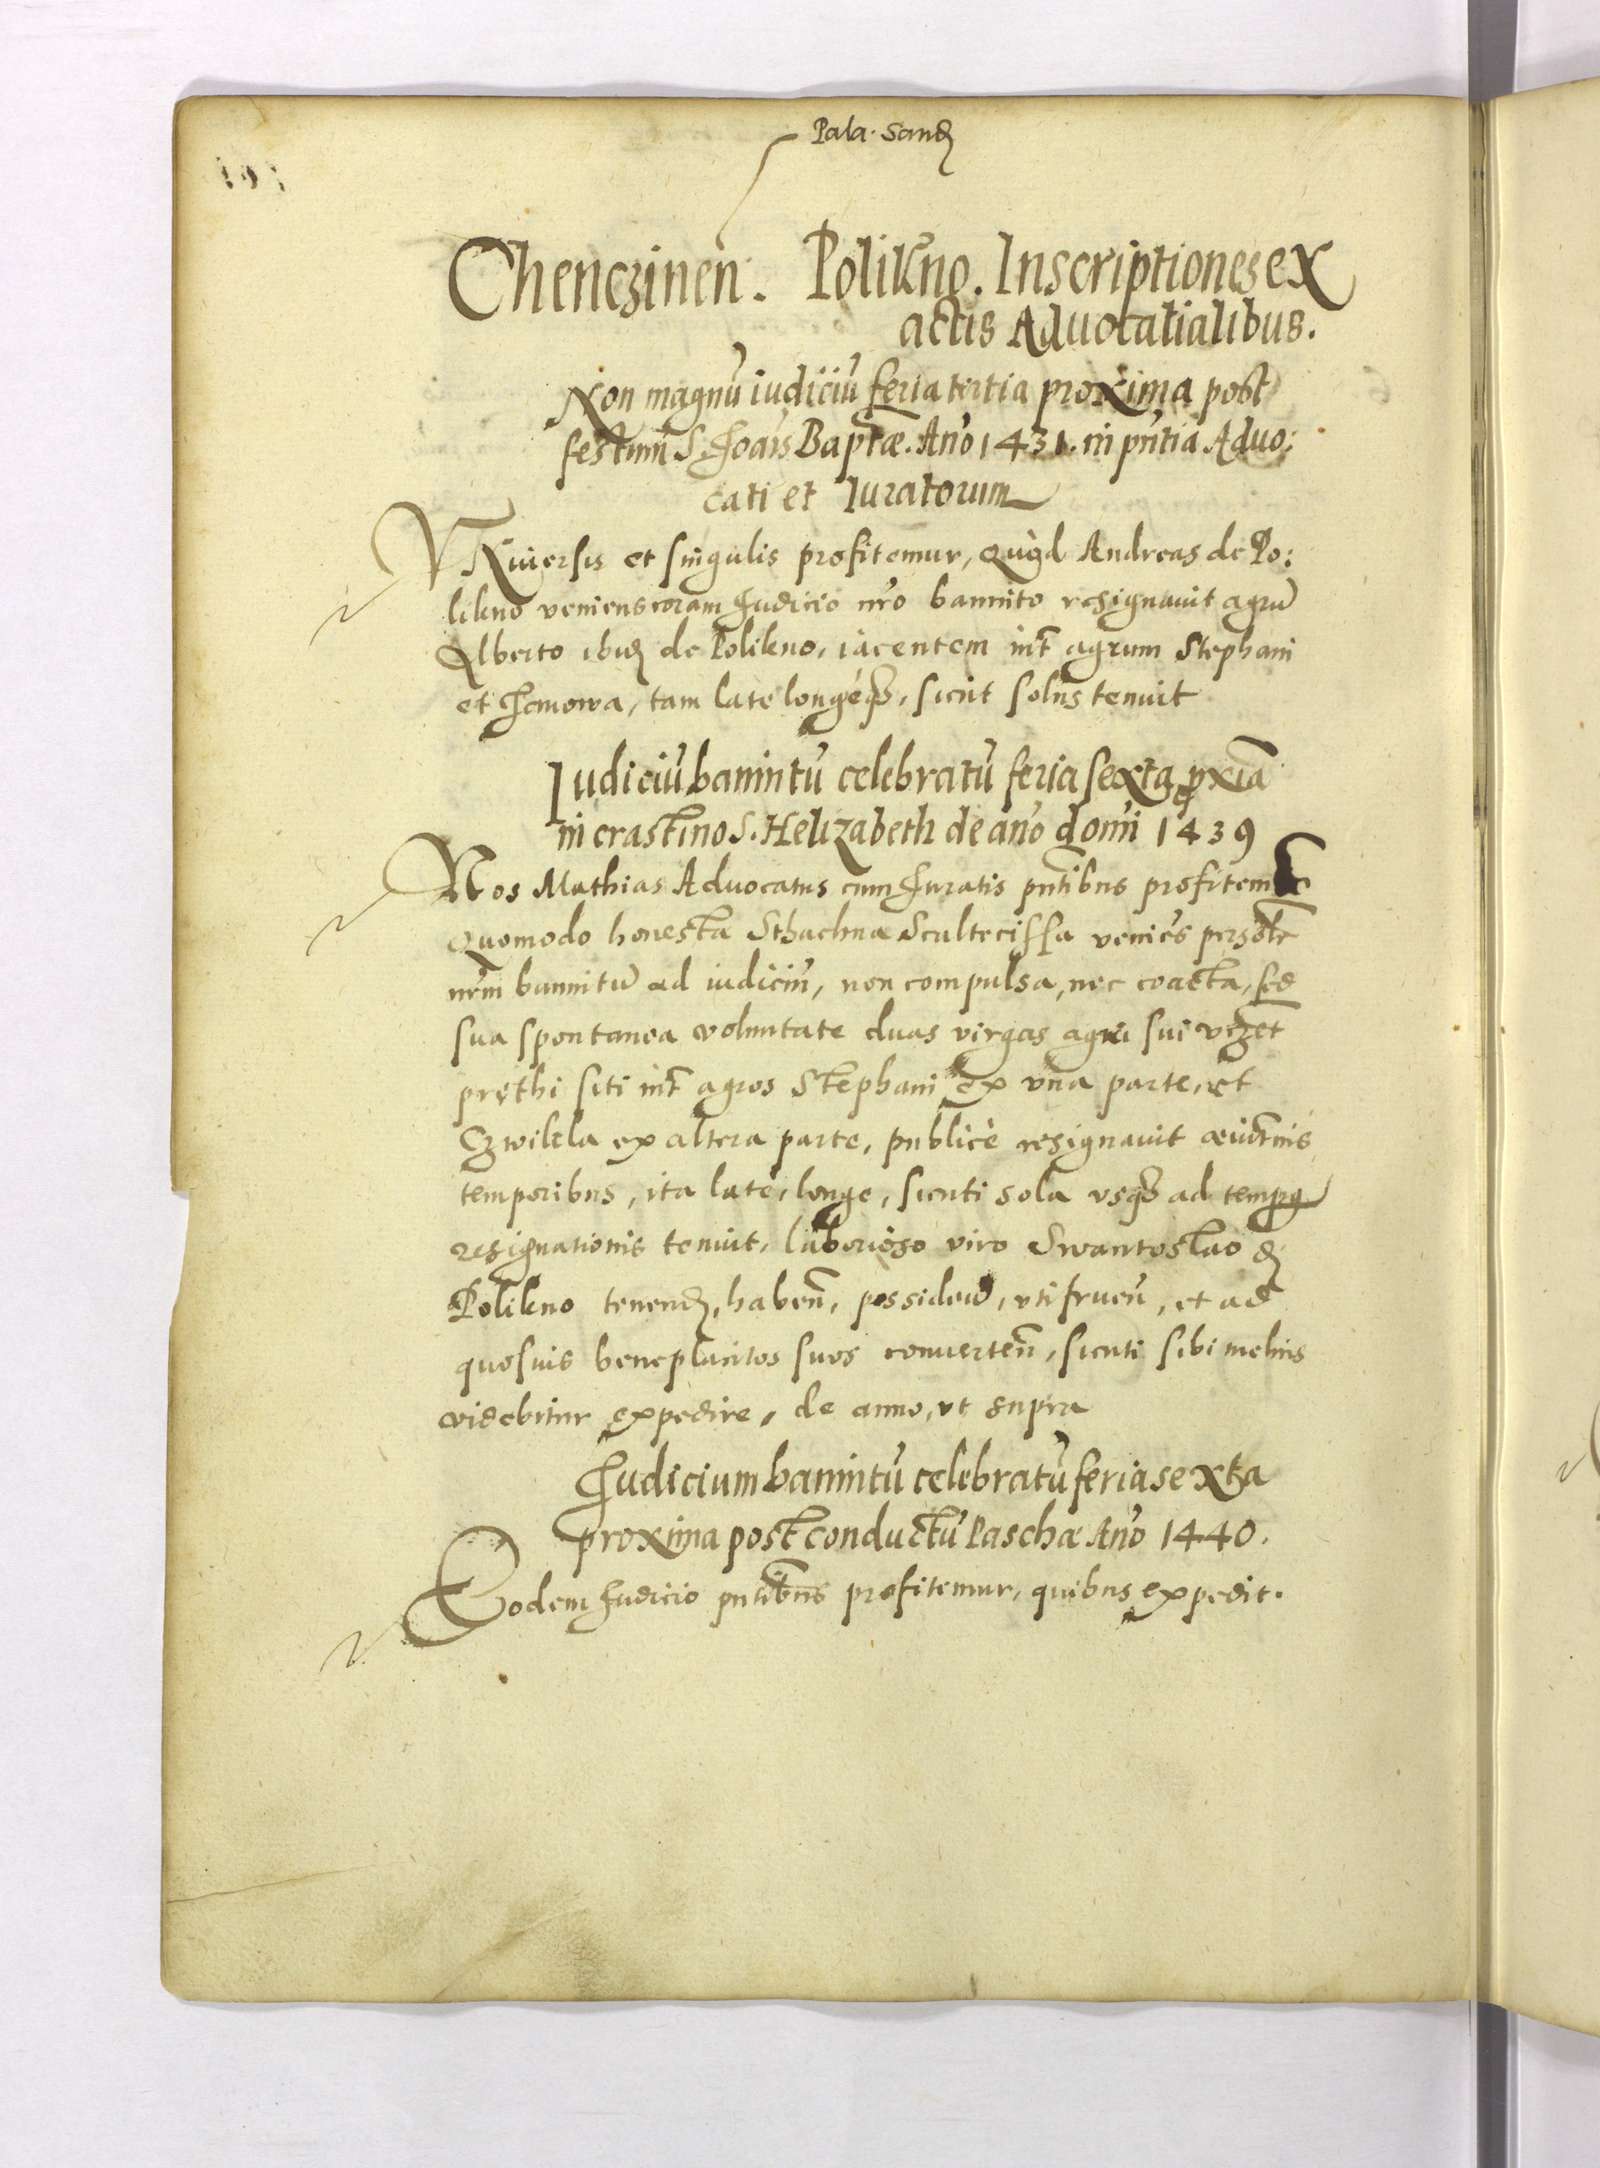 Pala. Sand
Chenczinen. Polikno. Inscriptiones ex
actis Aduocatialibus.
Non magnū iudiciū feria tertia proxima post
festum S. Joāis Baptæ. Año 1431. in pñtia Aduo:
cati et Iuratorum
VNiuersis et singulis profitemur, Quòd Andreas de Po:
likno veniens coram Judicio nr̄o bannito resignauit agrū
Alberto ibid de Polikno, iacentem int agrum Stephani
et Jemowa, tam late longeq₃, sicut solus tenuit
Iudiciū bannitū celebratū feria sexta pxīa
in crastino S. Helizabeth de año domī 1439
Nos Mathias Aduocatus cum Juratis pñtibus profitemur
Quomodo honesta Sthachna Scultecissa veniēs persolr
nr̄m bannitū ad iudiciū, non compulsa, nec coacta, sed
sua spontanea voluntate duas virgas agri sui vz et
pręthi siti int agros Stephani ex vna parte, et
Czwikla ex altera parte, publicè resignauit æuit̄nis
temporibus, ita late, longe, sicuti sola vsq₃ ad temp9
resignationis tenuit, laborioso viro Swantoslao d
Polikno tenend, habeñ, possideñ, vti frueñ, et ad
quosuis beneplacitos suos conuerteñ, sicuti sibi melius
videbitur expedire, de anno, vt supra
Judicium bannitū celebratū feria sexta
proxima post conductū Paschæ Año 1440.
Eodem Judicio pñtibus profitemur, quibus expedit.